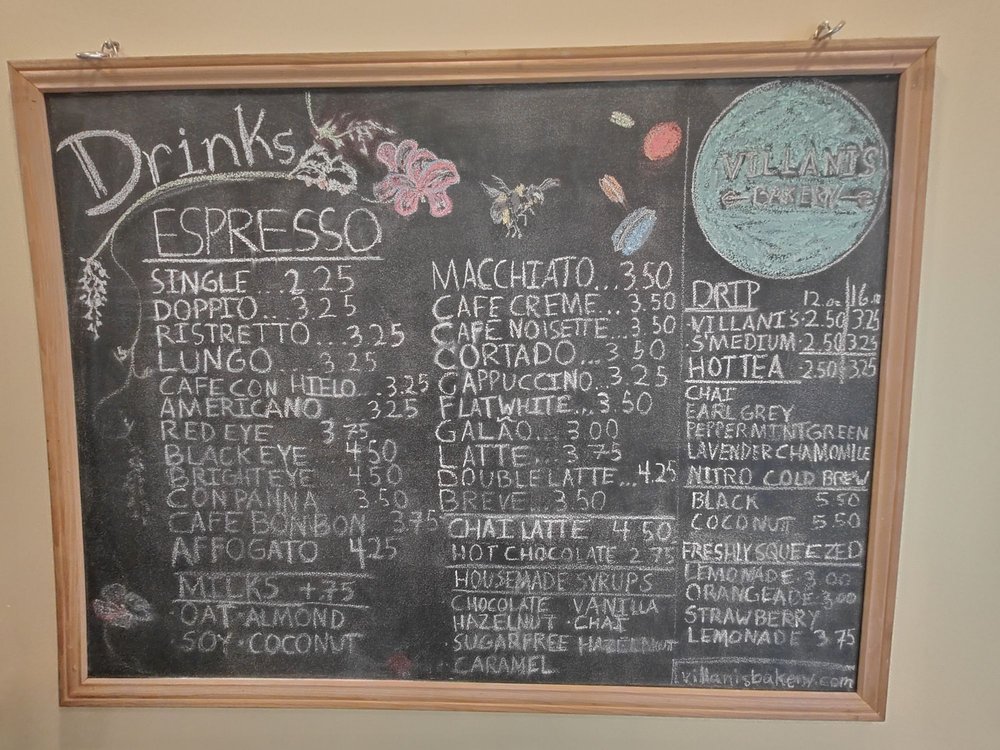 Drinks
ESPRESSO
SINGLE...2.25
DOPPIO...3.25
RISTRETTO...3.25
LUNGO...3.25
CAFE CON HIELO...3.25
AMERICANO 3.25
RED EYE 3.75
BLACK EYE 4.50
BRIGHT EYE 4.50
CON PANNA 3.50
CAFE BONBON 3.75
AFFOGATO 4.25
MILKS +.75
OAT·ALMOND
·SOY·COCONUT
MACCHIATO...3.50
CAFE CREME...3.50
CAFE NOISETTE...3.50
CORTADO...3.50
CAPPUCCINO...3.25
FLAT WHITE...3.50
GALÃO...3.00
LATTE...3.75
DOUBLE LATTE...4.25
BREVE...3.50
CHAI LATTE 4.50
HOT CHOCOLATE 2.75
HOUSEMADE SYRUPS
CHOCOLATE VANILLA
HAZELNUT · CHAI
·SUGAR FREE HAZELNUT
CARAMEL
VILLANI'S
BAKERY
DRIP 12oz 16oz
VILLANI'S·2.50 3.25
S'MEDIUM·2.50 3.25
HOT TEA ·2.50 3.25
CHAI
EARL GREY
PEPPERMINT GREEN
LAVENDER CHAMOMILE
NITRO COLD BREW
BLACK 5.50
COCONUT 5.50
FRESHLY SQUEEZED
LEMONADE·3.00
ORANGEADE·3.00
STRAWBERRY
LEMONADE 3.75
villanisbakery.com